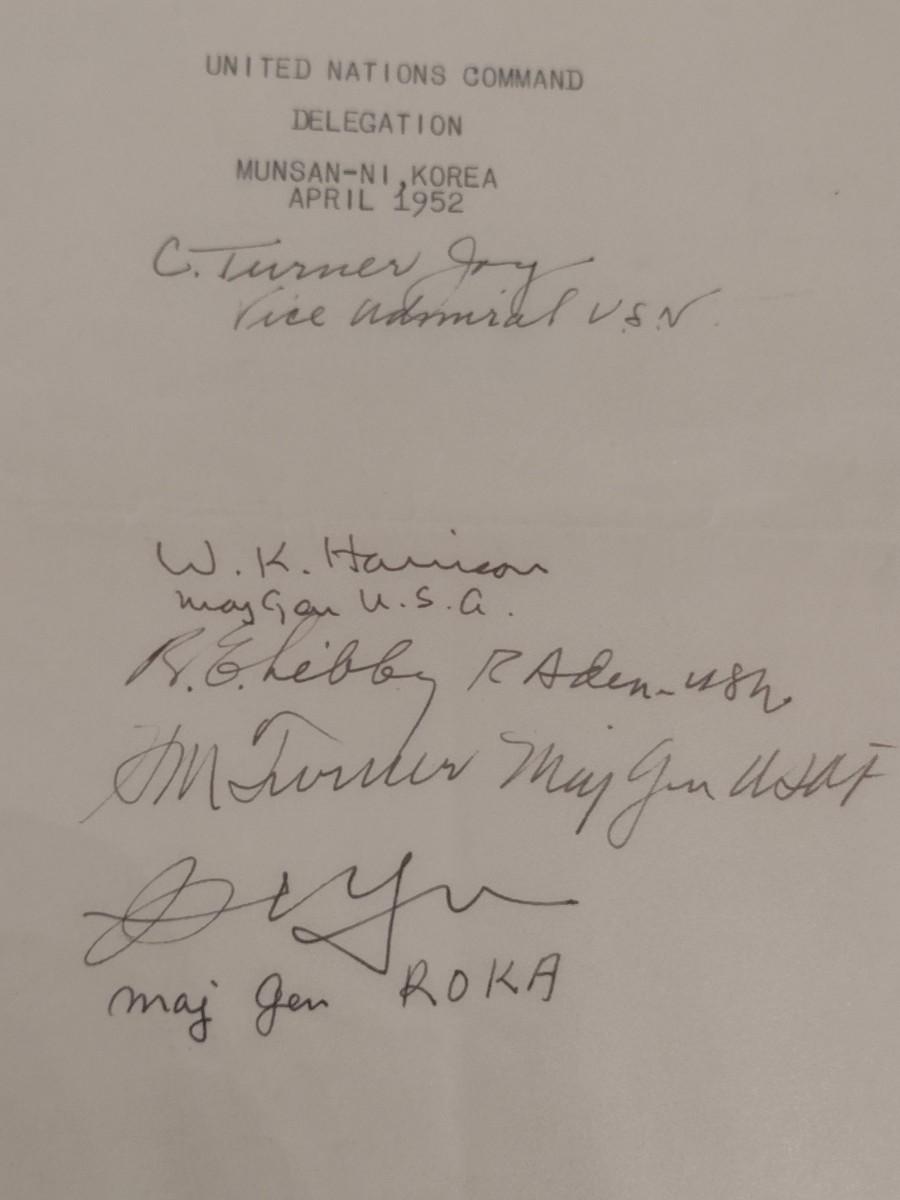 UNITED NATIONS COMMAND
DELEGATION
MUNSAN-NI,KOREA
APRIL 1952
C. Turner Joy
Vice Admiral U.S.N.
W. K. Harrison
Maj Gen U.S.A.
R.E. Libby RAdm-USN
HM Turner Maj Gen USAF
Maj Gen ROKA